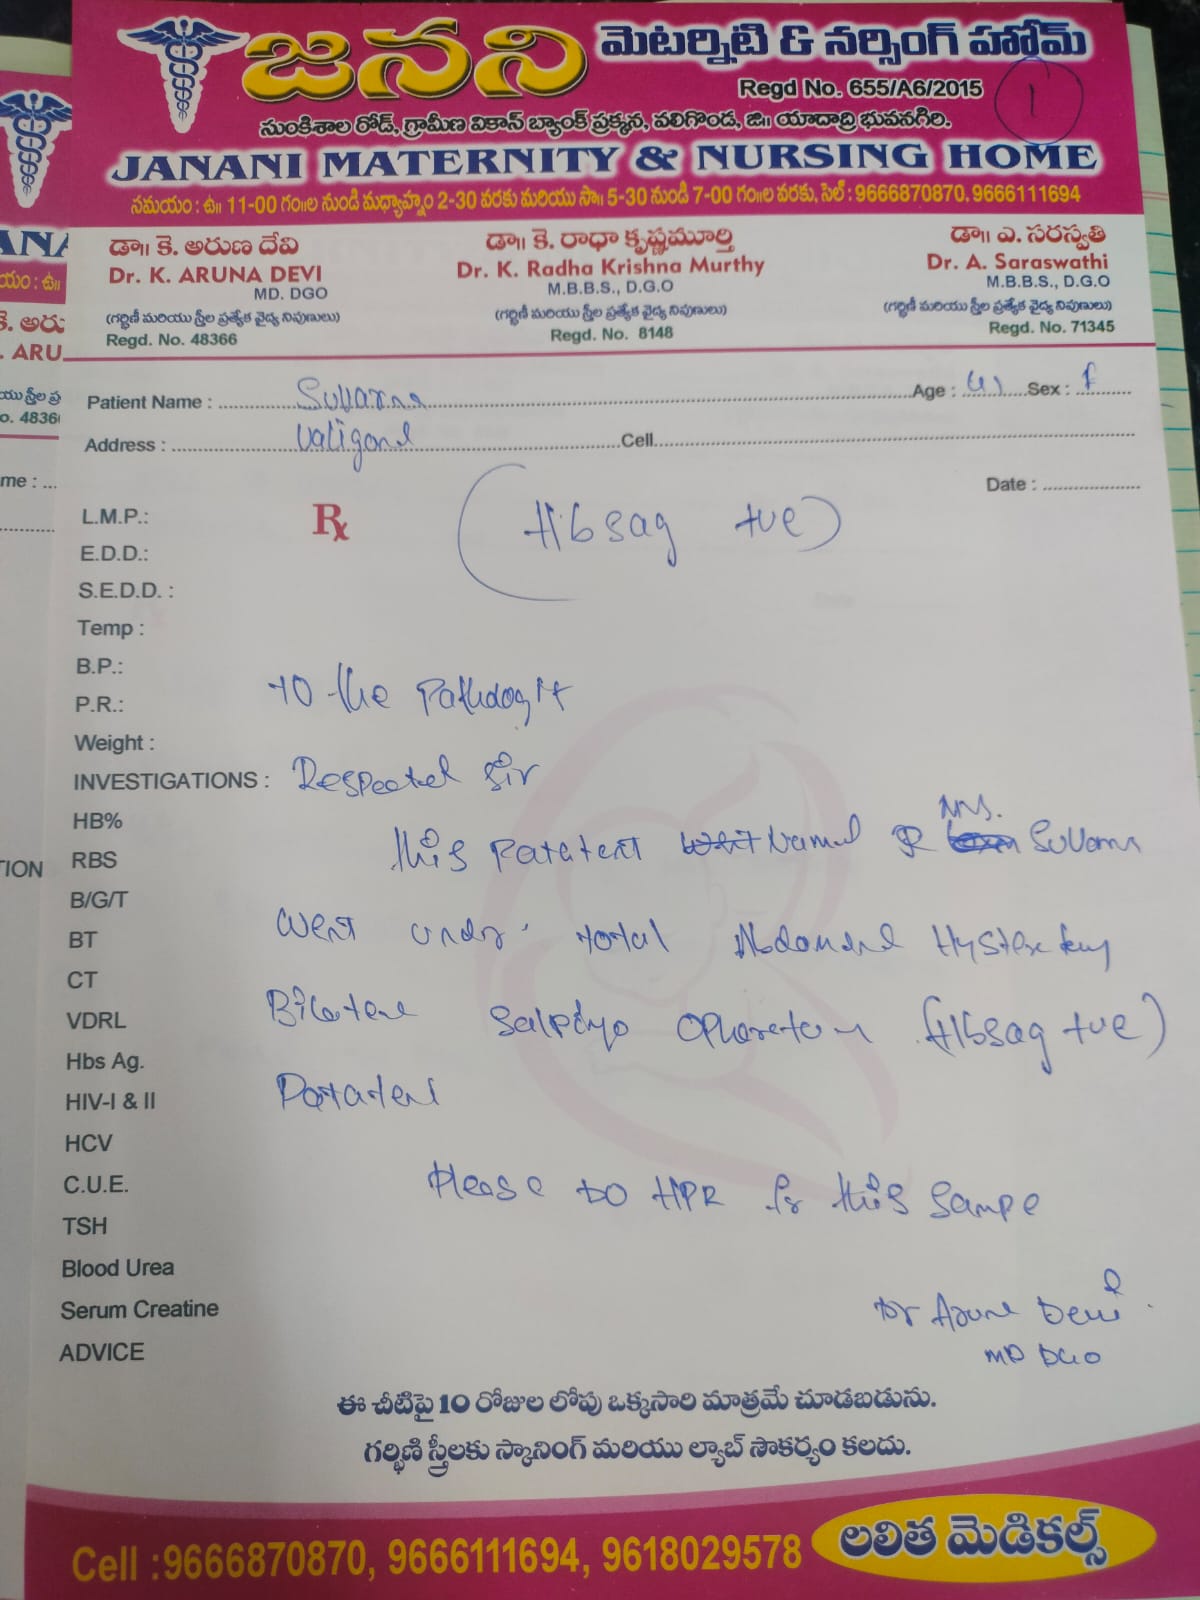 జనని మెటర్నిటి & నర్సింగ్ హోమ్
Regd No. 655/A6/2015
1
సుంకిశాల రోడ్, గ్రామీణ వికాస్ బ్యాంక్ ప్రక్కన, వలిగొండ, జి॥ యాదాద్రి భువనగిరి.
JANANI MATERNITY & NURSING HOME
సమయం : ఉ॥ 11-00 గం॥ల నుండి మధ్యాహ్నం 2-30 వరకు మరియు సా॥ 5-30 నుండి 7-00 గం॥ల వరకు, సెల్ : 9666870870, 9666111694
డా॥ కె. అరుణ దేవి
Dr. K. ARUNA DEVI
MD. DGO
(గర్భిణీ మరియు స్త్రీల ప్రత్యేక వైద్య నిపుణులు)
Regd. No. 48366
డా॥ కె. రాధా కృష్ణమూర్తి
Dr. K. Radha Krishna Murthy
M.B.B.S., D.G.O
(గర్భిణీ మరియు స్త్రీల ప్రత్యేక వైద్య నిపుణులు)
Regd. No. 8148
డా॥ ఎ. సరస్వతి
Dr. A. Saraswathi
M.B.B.S., D.G.O
(గర్భిణీ మరియు స్త్రీల ప్రత్యేక వైద్య నిపుణులు)
Regd. No. 71345
Patient Name : Suvarna Age : Sex : f
Address : Valigond Cell
Date :
L.M.P.: Rx (Hbsag +ve)
E.D.D.:
S.E.D.D. :
Temp :
B.P.:
P.R.: To the Pathologist
Weight :
INVESTIGATIONS : Respected Sir
HB%
RBS this patatent Named Mrs. Suvarna
B/G/T
BT went under total Abdominal Hysterectomy
CT
VDRL Bilateral Salpingo (Hbsag +ve)
Hbs Ag.
HIV-I & II Patatent
HCV
C.U.E. Please do HPR for this Sampe
TSH
Blood Urea
Serum Creatine Dr Aruna Devi
ADVICE MD DGO
ఈ చీటిపై 10 రోజుల లోపు ఒక్కసారి మాత్రమే చూడబడును.
గర్భిణి స్త్రీలకు స్కానింగ్ మరియు ల్యాబ్ సౌకర్యం కలదు.
Cell :9666870870, 9666111694, 9618029578
లలిత మెడికల్స్